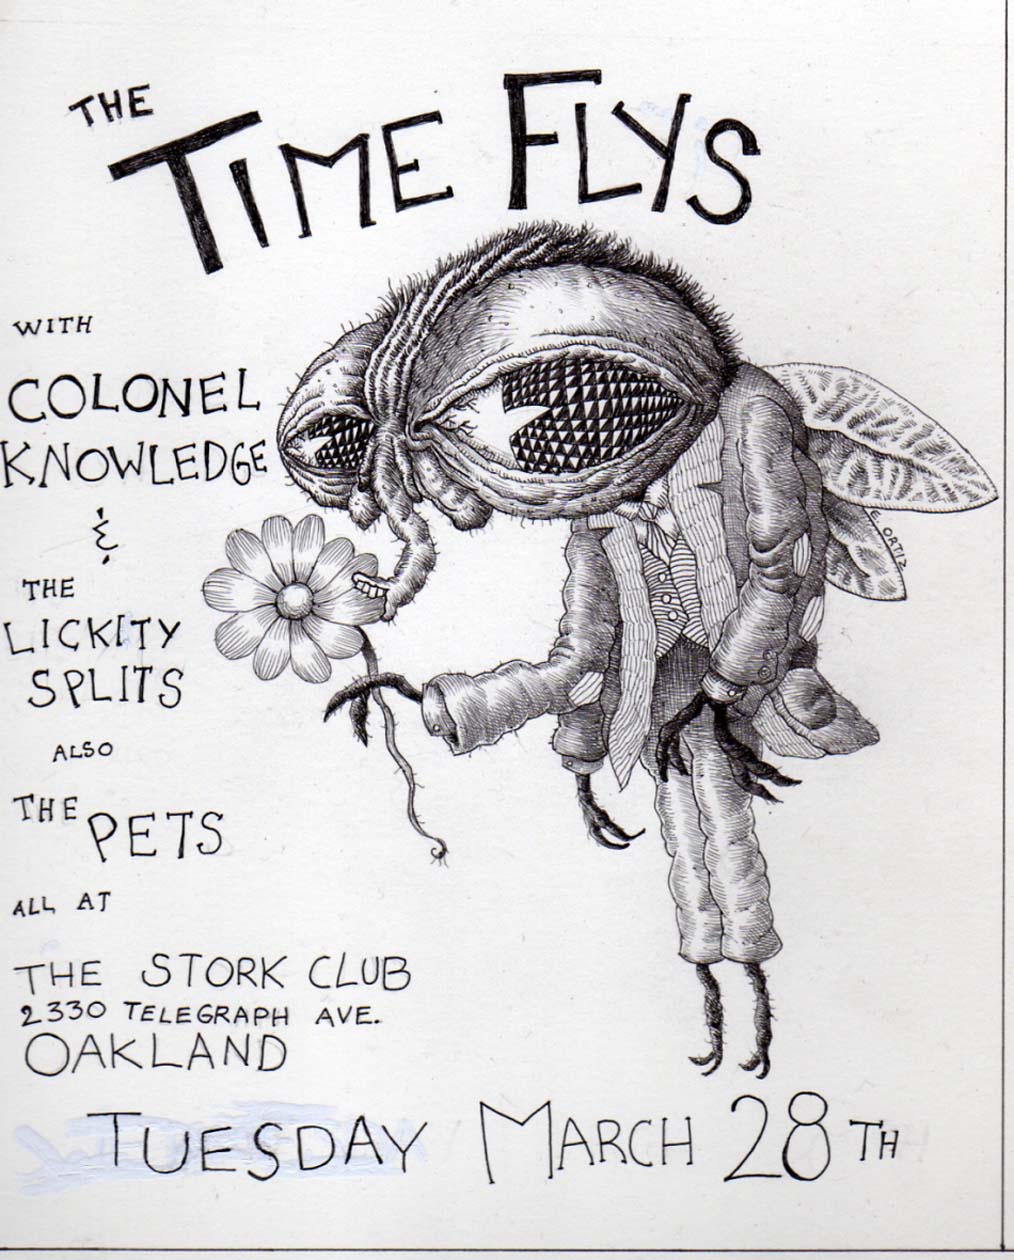 THE
TIME FLYS
WITH
COLONEL
KNOWLEDGE
&
THE
LICKITY
SPLITS
ALSO
THE PETS
ALL AT
THE STORK CLUB
2330 TELEGRAPH AVE.
OAKLAND
TUESDAY MARCH 28TH
E. ORTIZ